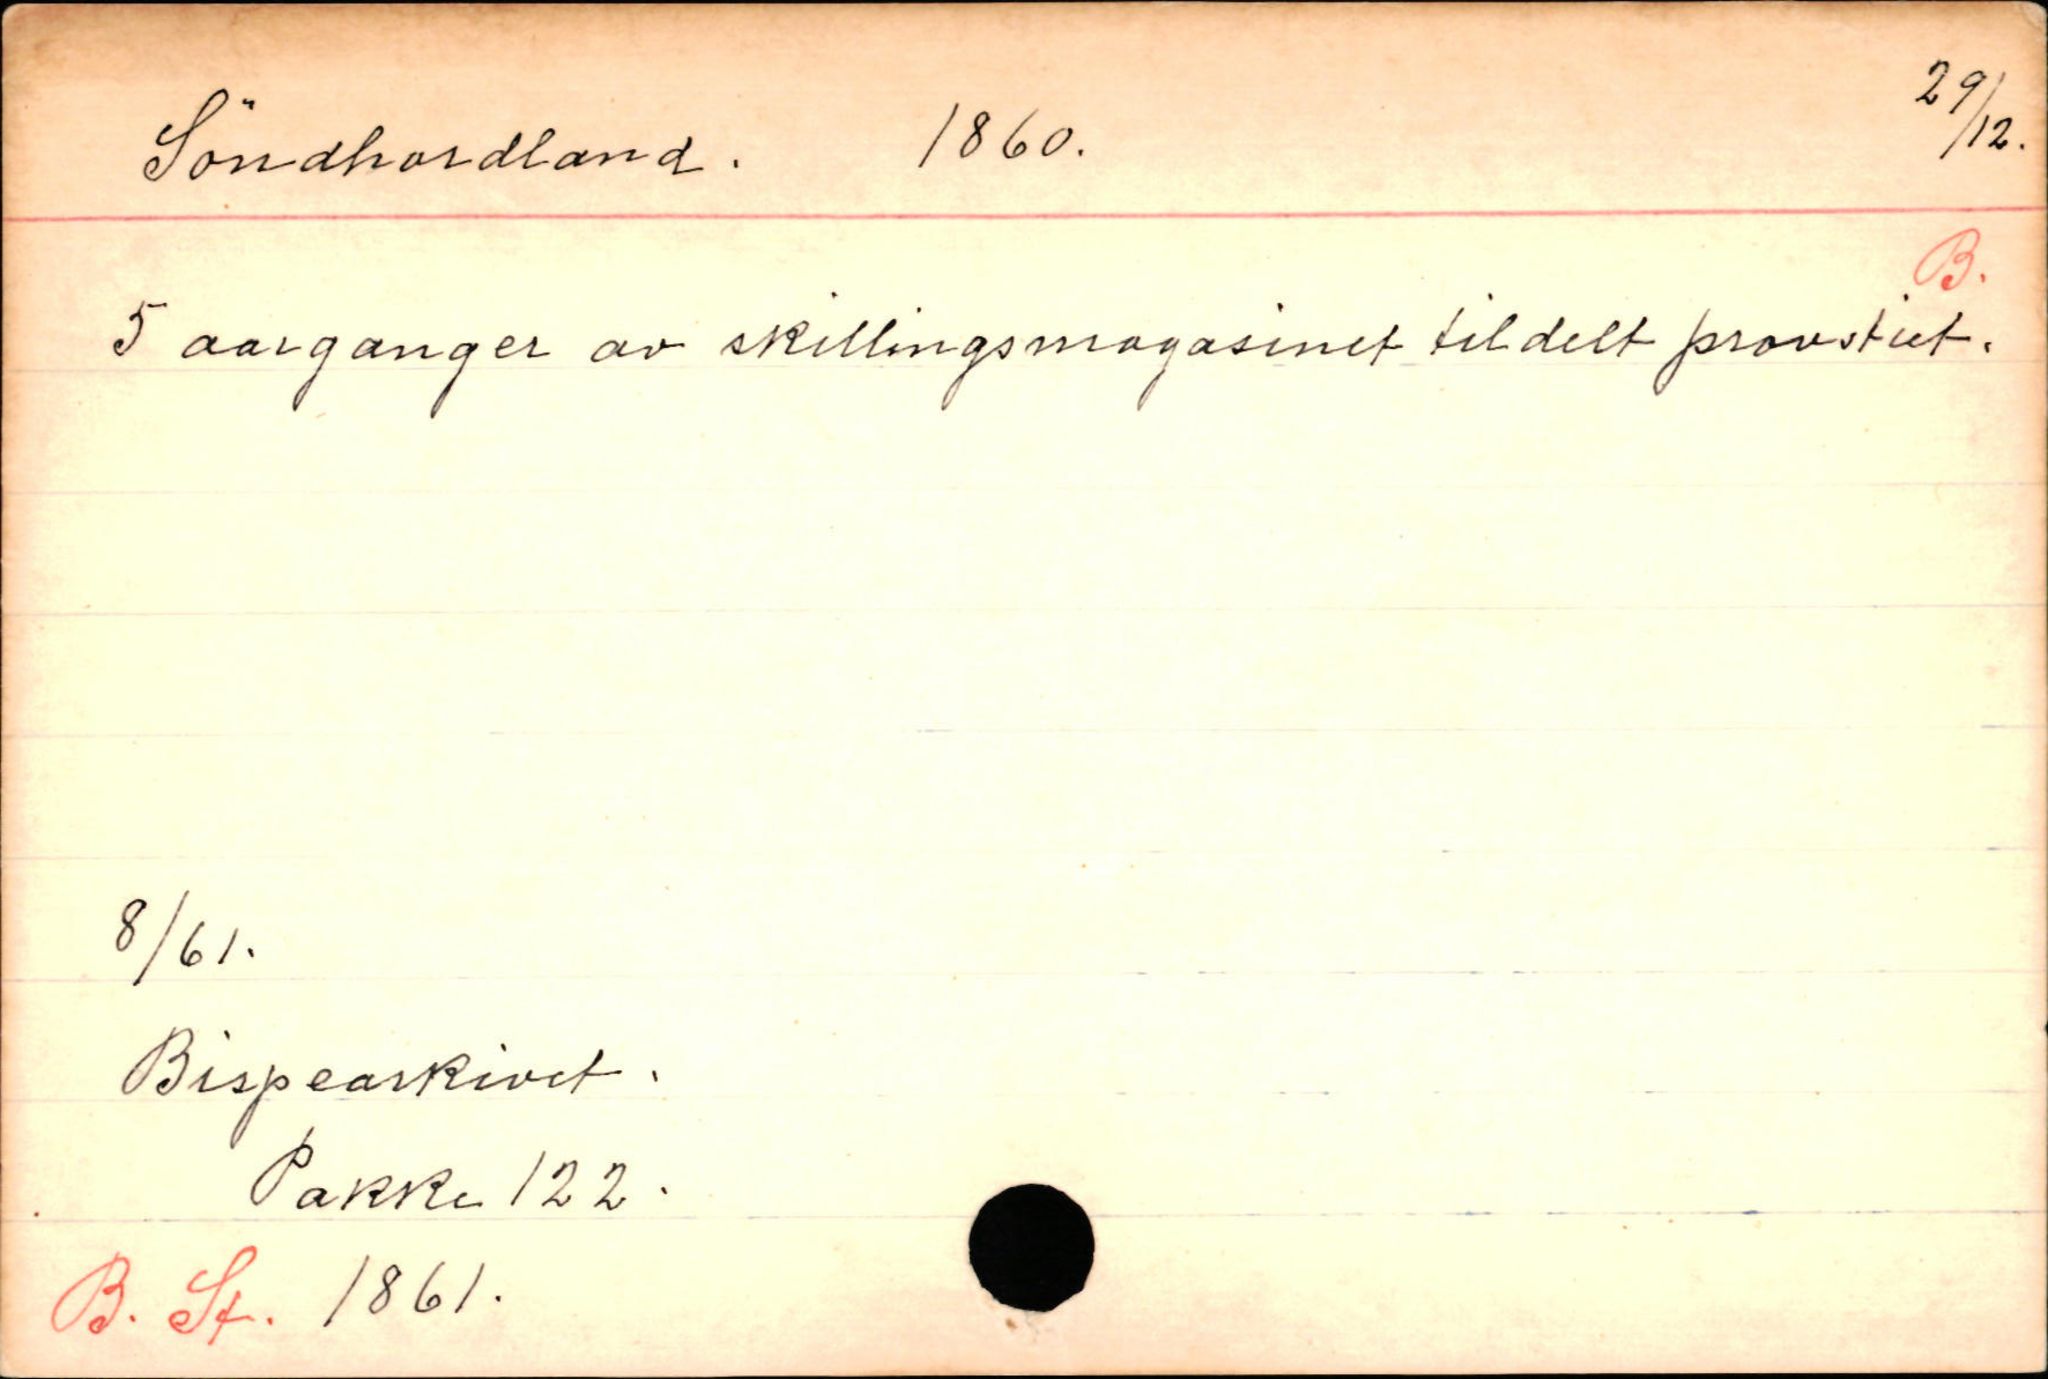 Söndhordland. 1860. 29/12.
B.
5 aarganger av skillingsmagasinet tildelt provstiet.
8/61.
Bispearkivet.
Pakke 122.
B. St. 1861.